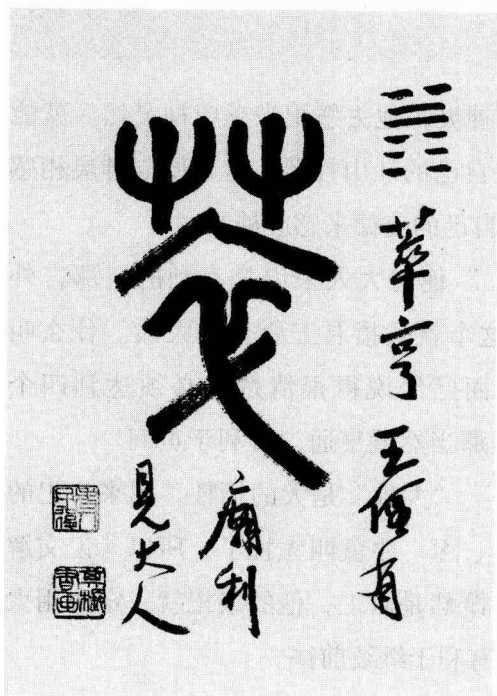 萃
萃亨王假有
廟利
見大人